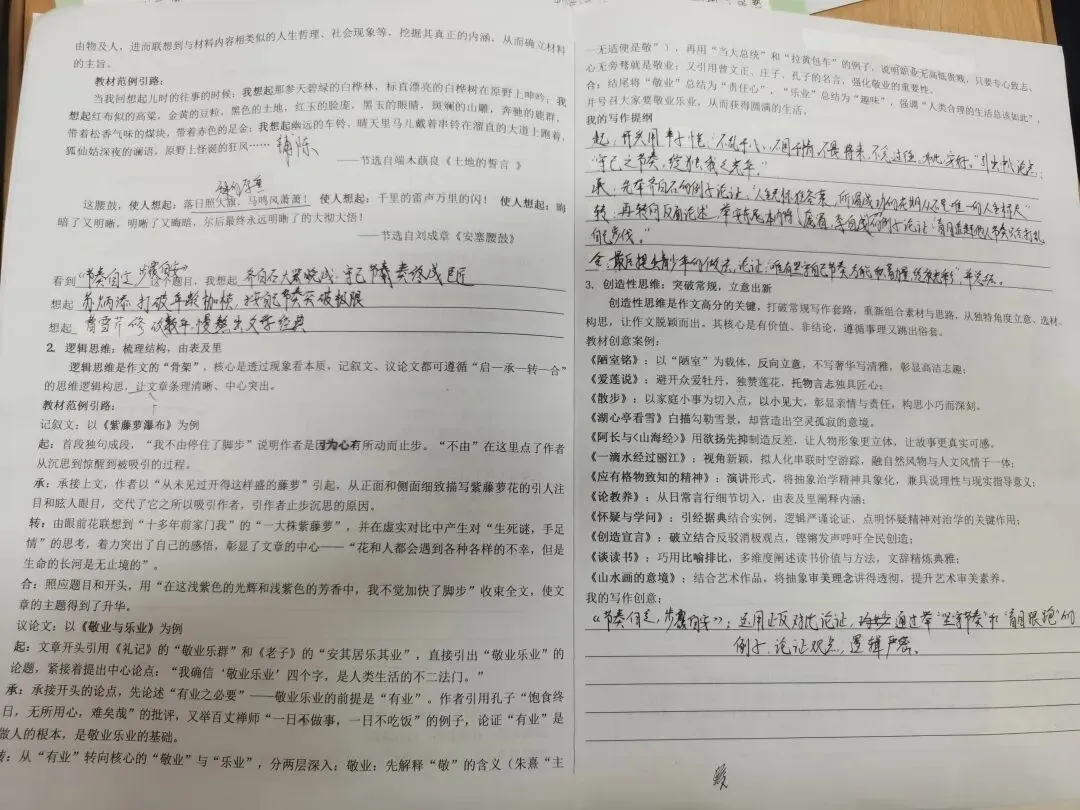 由物及人，进而联想到与材料内容相类似的人生哲理、社会现象等，挖掘其真正的内涵，从而确立材料
的主旨。
教材范例引路：
当我回想起儿时的往事的时候：我想起那参天碧绿的白桦林，标直漂亮的白桦树在原野上呻吟；我
想起红布似的高粱，金黄的豆粒，黑色的土地，红玉的脸庞，黑玉的眼睛，斑斓的山雕，奔驰的鹿群，
带着松香气味的煤块，带着赤色的足金；我想起幽远的车铃，晴天里马儿戴着串铃在溜直的大道上跑着，
狐仙姑深夜的谰语，原野上怪诞的狂风……
铺陈
——节选自端木蕻良《土地的誓言》
这腰鼓，使人想起：落日照大旗，马鸣风萧萧！使人想起：千里的雷声万里的闪！使人想起：晦
暗了又明晰，明晰了又晦暗，尔后最终永远明晰了的大彻大悟！
——节选自刘成章《安塞腰鼓》
看到“节奏自定，步履自安”这个题目，我想起 齐白石大器晚成，守己节奏终成巨匠
想起 苏炳添打破年龄枷锁，按自己节奏突破极限
想起 曹雪芹修改数年，慢熬出文学经典
2. 逻辑思维：梳理结构，由表及里
逻辑思维是作文的“骨架”，核心是透过现象看本质，记叙文、议论文都可遵循“启—承—转—合”
的思维逻辑构思，让文章条理清晰、中心突出。
教材范例引路：
记叙文：以《紫藤萝瀑布》为例
起：首段独句成段，“我不由停住了脚步”说明作者是因为心有所动而止步。“不由”在这里点了作者
从沉思到惊醒到被吸引的过程。
承：承接上文，作者以“从未见过开得这样盛的藤萝”引起，从正面和侧面细致描写紫藤萝花的引人注
目和炫人眼目，交代了它之所以吸引作者，引作者止步沉思的原因。
转：由眼前花联想到“十多年前家门我”的“一大株紫藤萝”，并在虚实对比中产生对“生死谜，手足
情”的思考，着力突出了自己的感悟，彰显了文章的中心——“花和人都会遇到各种各样的不幸，但是
生命的长河是无止境的”。
合：照应题目和开头，用“在这浅紫色的光辉和浅紫色的芳香中，我不觉加快了脚步”收束全文，使文
章的主题得到了升华。
议论文：以《敬业与乐业》为例
起：文章开头引用《礼记》的“敬业乐群”和《老子》的“安其居乐其业”，直接引出“敬业乐业”的
论题，紧接着提出中心论点：“我确信‘敬业乐业’四个字，是人类生活的不二法门。”
承：承接开头的论点，先论述“有业之必要”——敬业乐业的前提是“有业”。作者引用孔子“饱食终
日，无所用心，难矣哉”的批评，又举百丈禅师“一日不做事，一日不吃饭”的例子，论证“有业”是
做人的根本，是敬业乐业的基础。
转：从“有业”转向核心的“敬业”与“乐业”，分两层深入：敬业：先解释“敬”的含义（朱熹“主
一无适便是敬”），再用“当大总统”和“拉黄包车”的例子，说明职业无高低贵贱，只要专心致志、
心无旁骛就是敬业；又引用曾文正、庄子、孔子的名言，强化敬业的重要性。
合：结尾将“敬业”总结为“责任心”，“乐业”总结为“趣味”，强调“人类合理的生活总该如此”，
并号召大家要敬业乐业，从而获得圆满的生活。
我的写作提纲
起，开头用丰子恺：“不乱于心，不困于情，不畏将来，不念过往，如此，安好。”引出中心论点：
“守己之节奏，绽独我之光华。”
承，先举齐白石的例子论证：“人生没有标准答案，所谓成功的花期从不是唯一的人生标尺”
转，再转向反面论述，
自己步伐。”
合，最后提出青少年的做法，论证：“唯有坚守自己节奏，方能
3. 创造性思维：突破常规，立意出新
创造性思维是作文高分的关键，打破常规写作套路，重新组合素材与思路，从独特角度立意、选材、
构思，让作文脱颖而出。其核心是有价值、非结论，遵循事理又跳出俗套。
教材创意案例：
《陋室铭》：以“陋室”为载体，反向立意，不写奢华写清雅，彰显高洁志趣；
《爱莲说》：避开众爱牡丹，独赞莲花，托物言志独具匠心；
《散步》：以家庭小事为切入点，以小见大，彰显亲情与责任，构思小巧而深刻。
《湖心亭看雪》白描勾勒雪景，却营造出空灵孤寂的意境。
《阿长与<山海经>》用欲扬先抑制造反差，让人物形象更立体，让故事更真实可感。
《一滴水经过丽江》：视角新颖，拟人化串联时空游踪，融自然风物与人文风情于一体；
《应有格物致知的精神》：演讲形式，将抽象治学精神具象化，兼具说理性与现实指导意义；
《论教养》：从日常言行细节切入，由表及里阐释内涵；
《怀疑与学问》：引经据典结合实例，逻辑严谨论证，点明怀疑精神对治学的关键作用；
《创造宣言》：破立结合反驳消极观点，铿锵发声呼吁全民创造；
《谈读书》：巧用比喻排比，多维度阐述读书价值与方法，文辞精炼典雅；
《山水画的意境》：结合艺术作品，将抽象审美理念讲得透彻，提升艺术审美素养。
我的写作创意：
《节奏自定，步履自安》：运用正反对比论证，巧妙通过举“坚守节奏”和“盲目跟跑”的
例子，论证观点，逻辑严密。